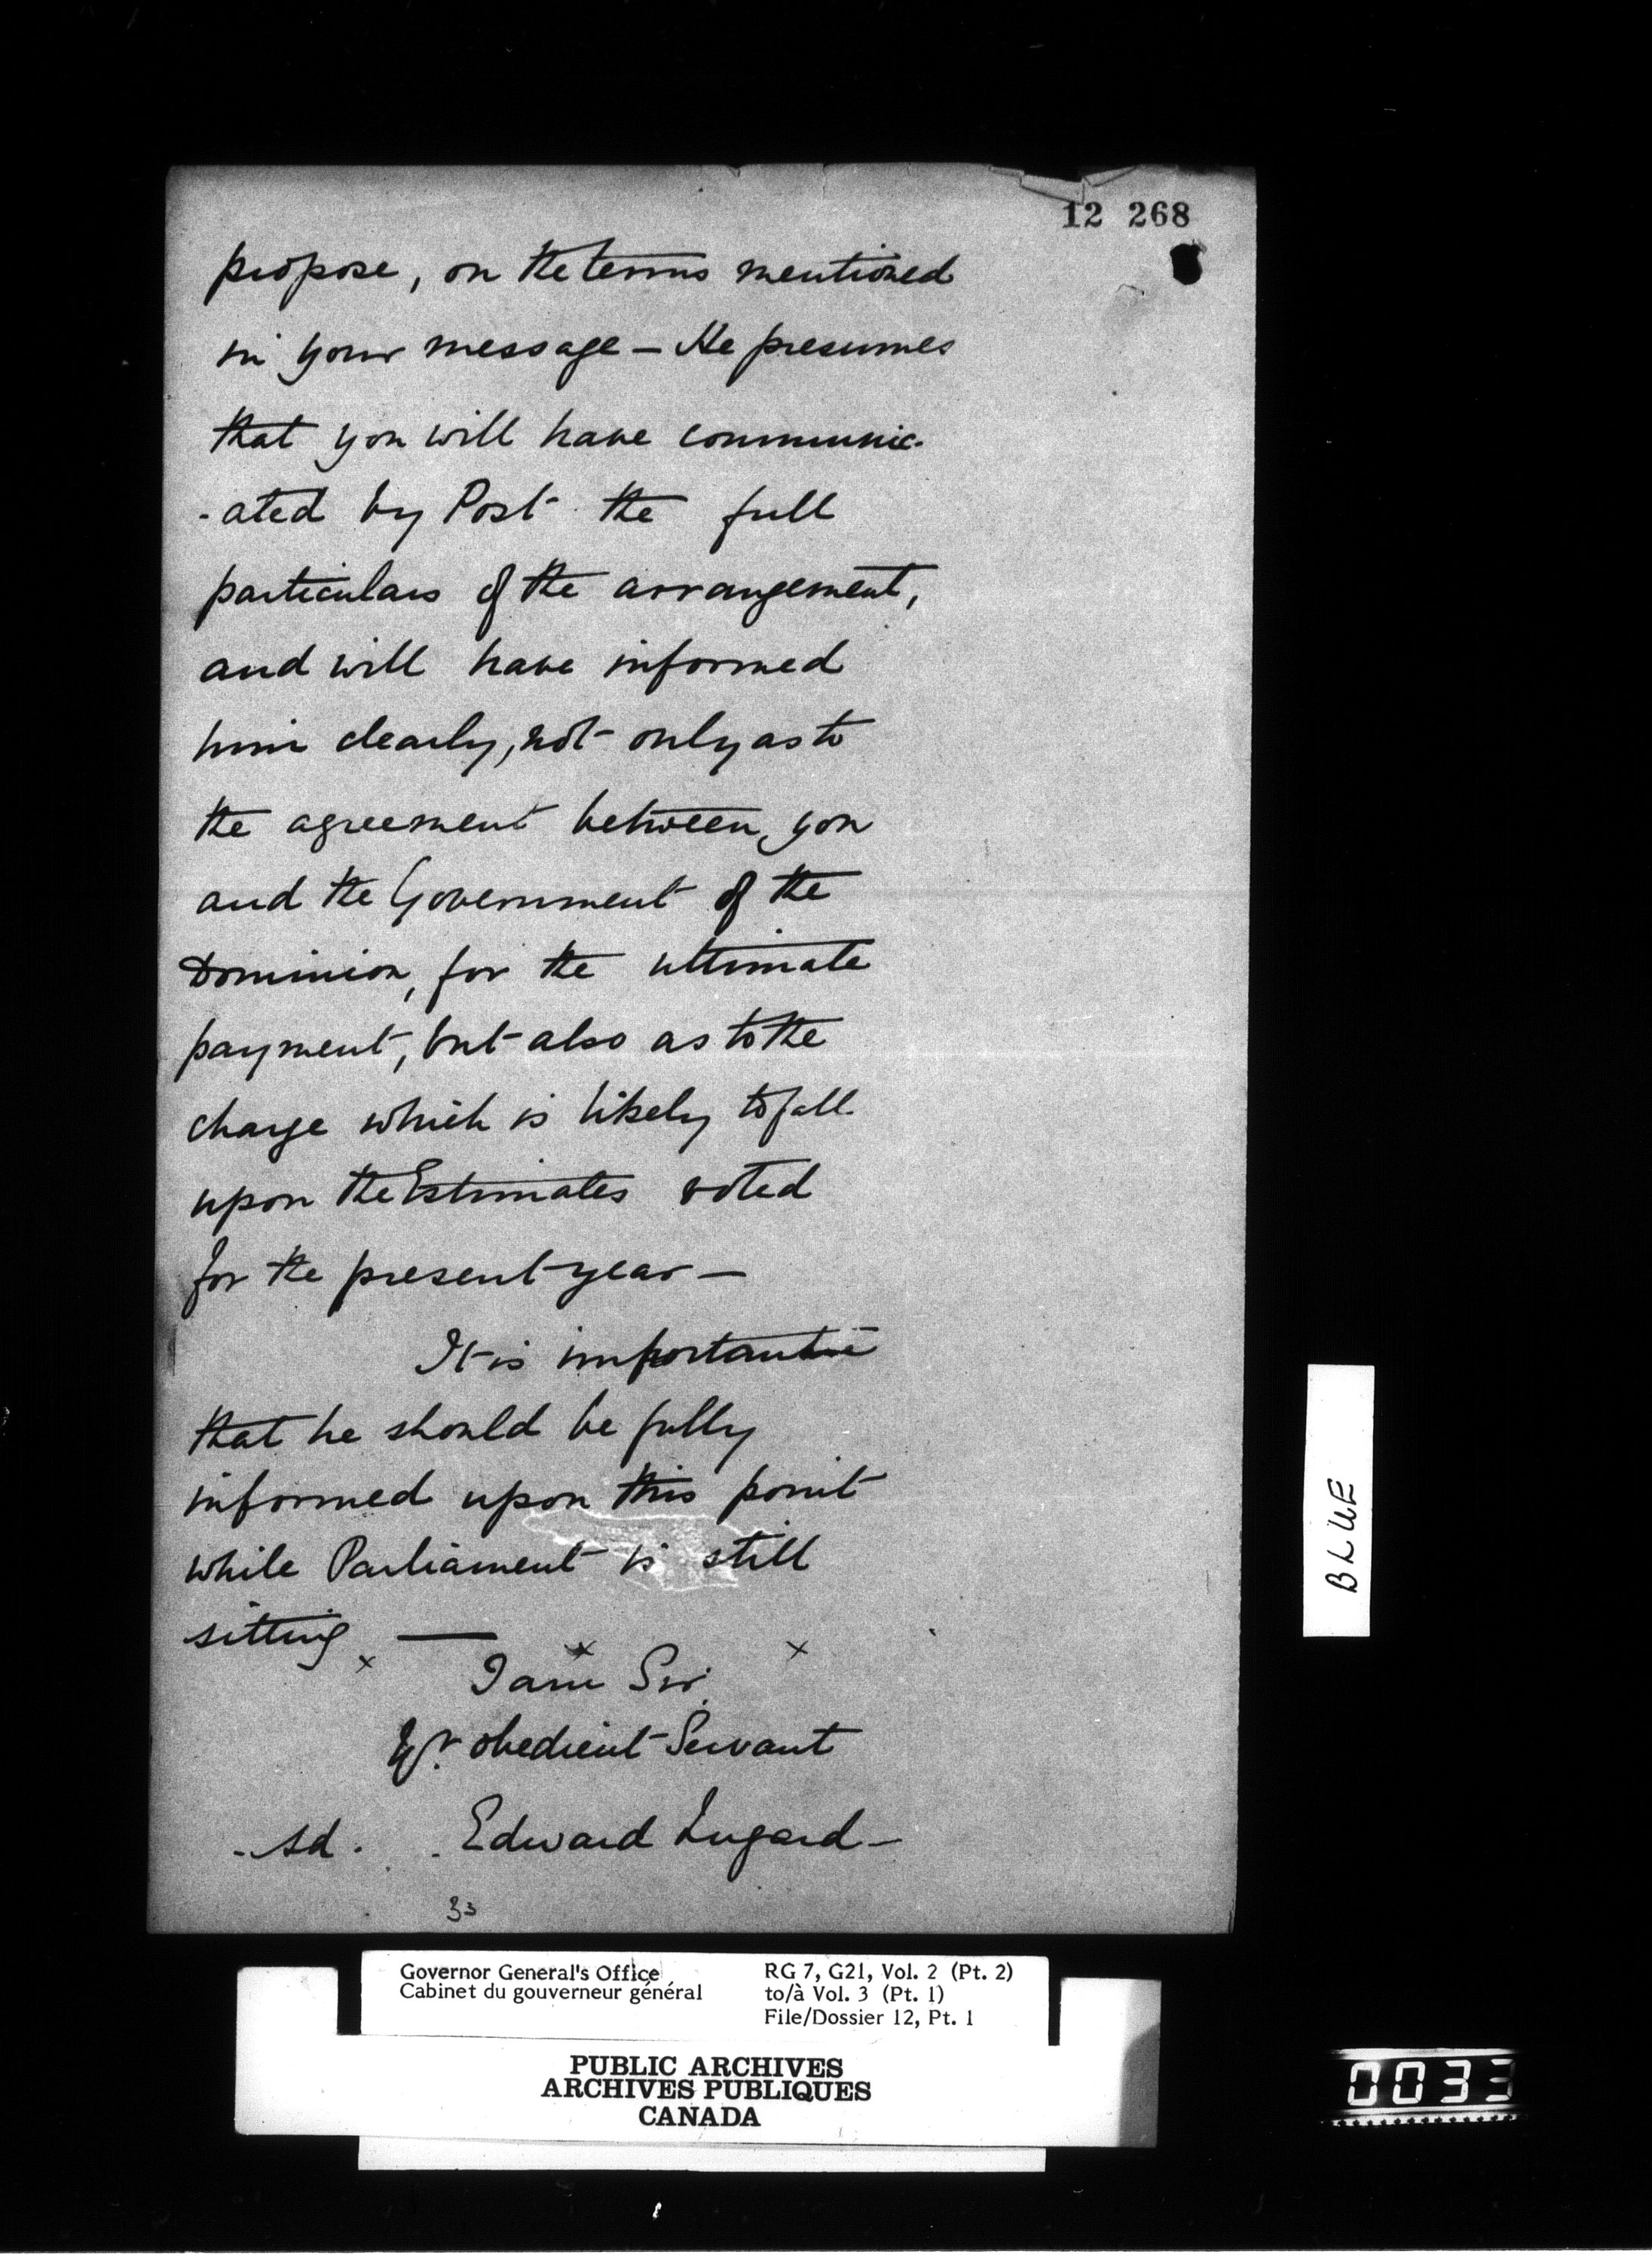 12 268
propose, on the terms mentioned
in your message - He presumes
that you will have communic-
-ated by Post the full
particulars of the arrangement,
and will have informed
him clearly, not only as to
the agreement between you
and the Government of the
Dominion, for the ultimate
payment, but also as to the
charge which is likely to fall
upon the Estimates voted
for the present year -
It is important
that he should be fully
informed upon this point
while Parliament is still
sitting —
x x x
I am Sir
Yr. obedient Servant
- sd. . Edward Lugard -
33
BLUE
Governor General's Office
Cabinet du gouverneur général
RG 7, G21, Vol. 2 (Pt. 2)
to/à Vol. 3 (Pt. 1)
File/Dossier 12, Pt. 1
PUBLIC ARCHIVES
ARCHIVES PUBLIQUES
CANADA
0033